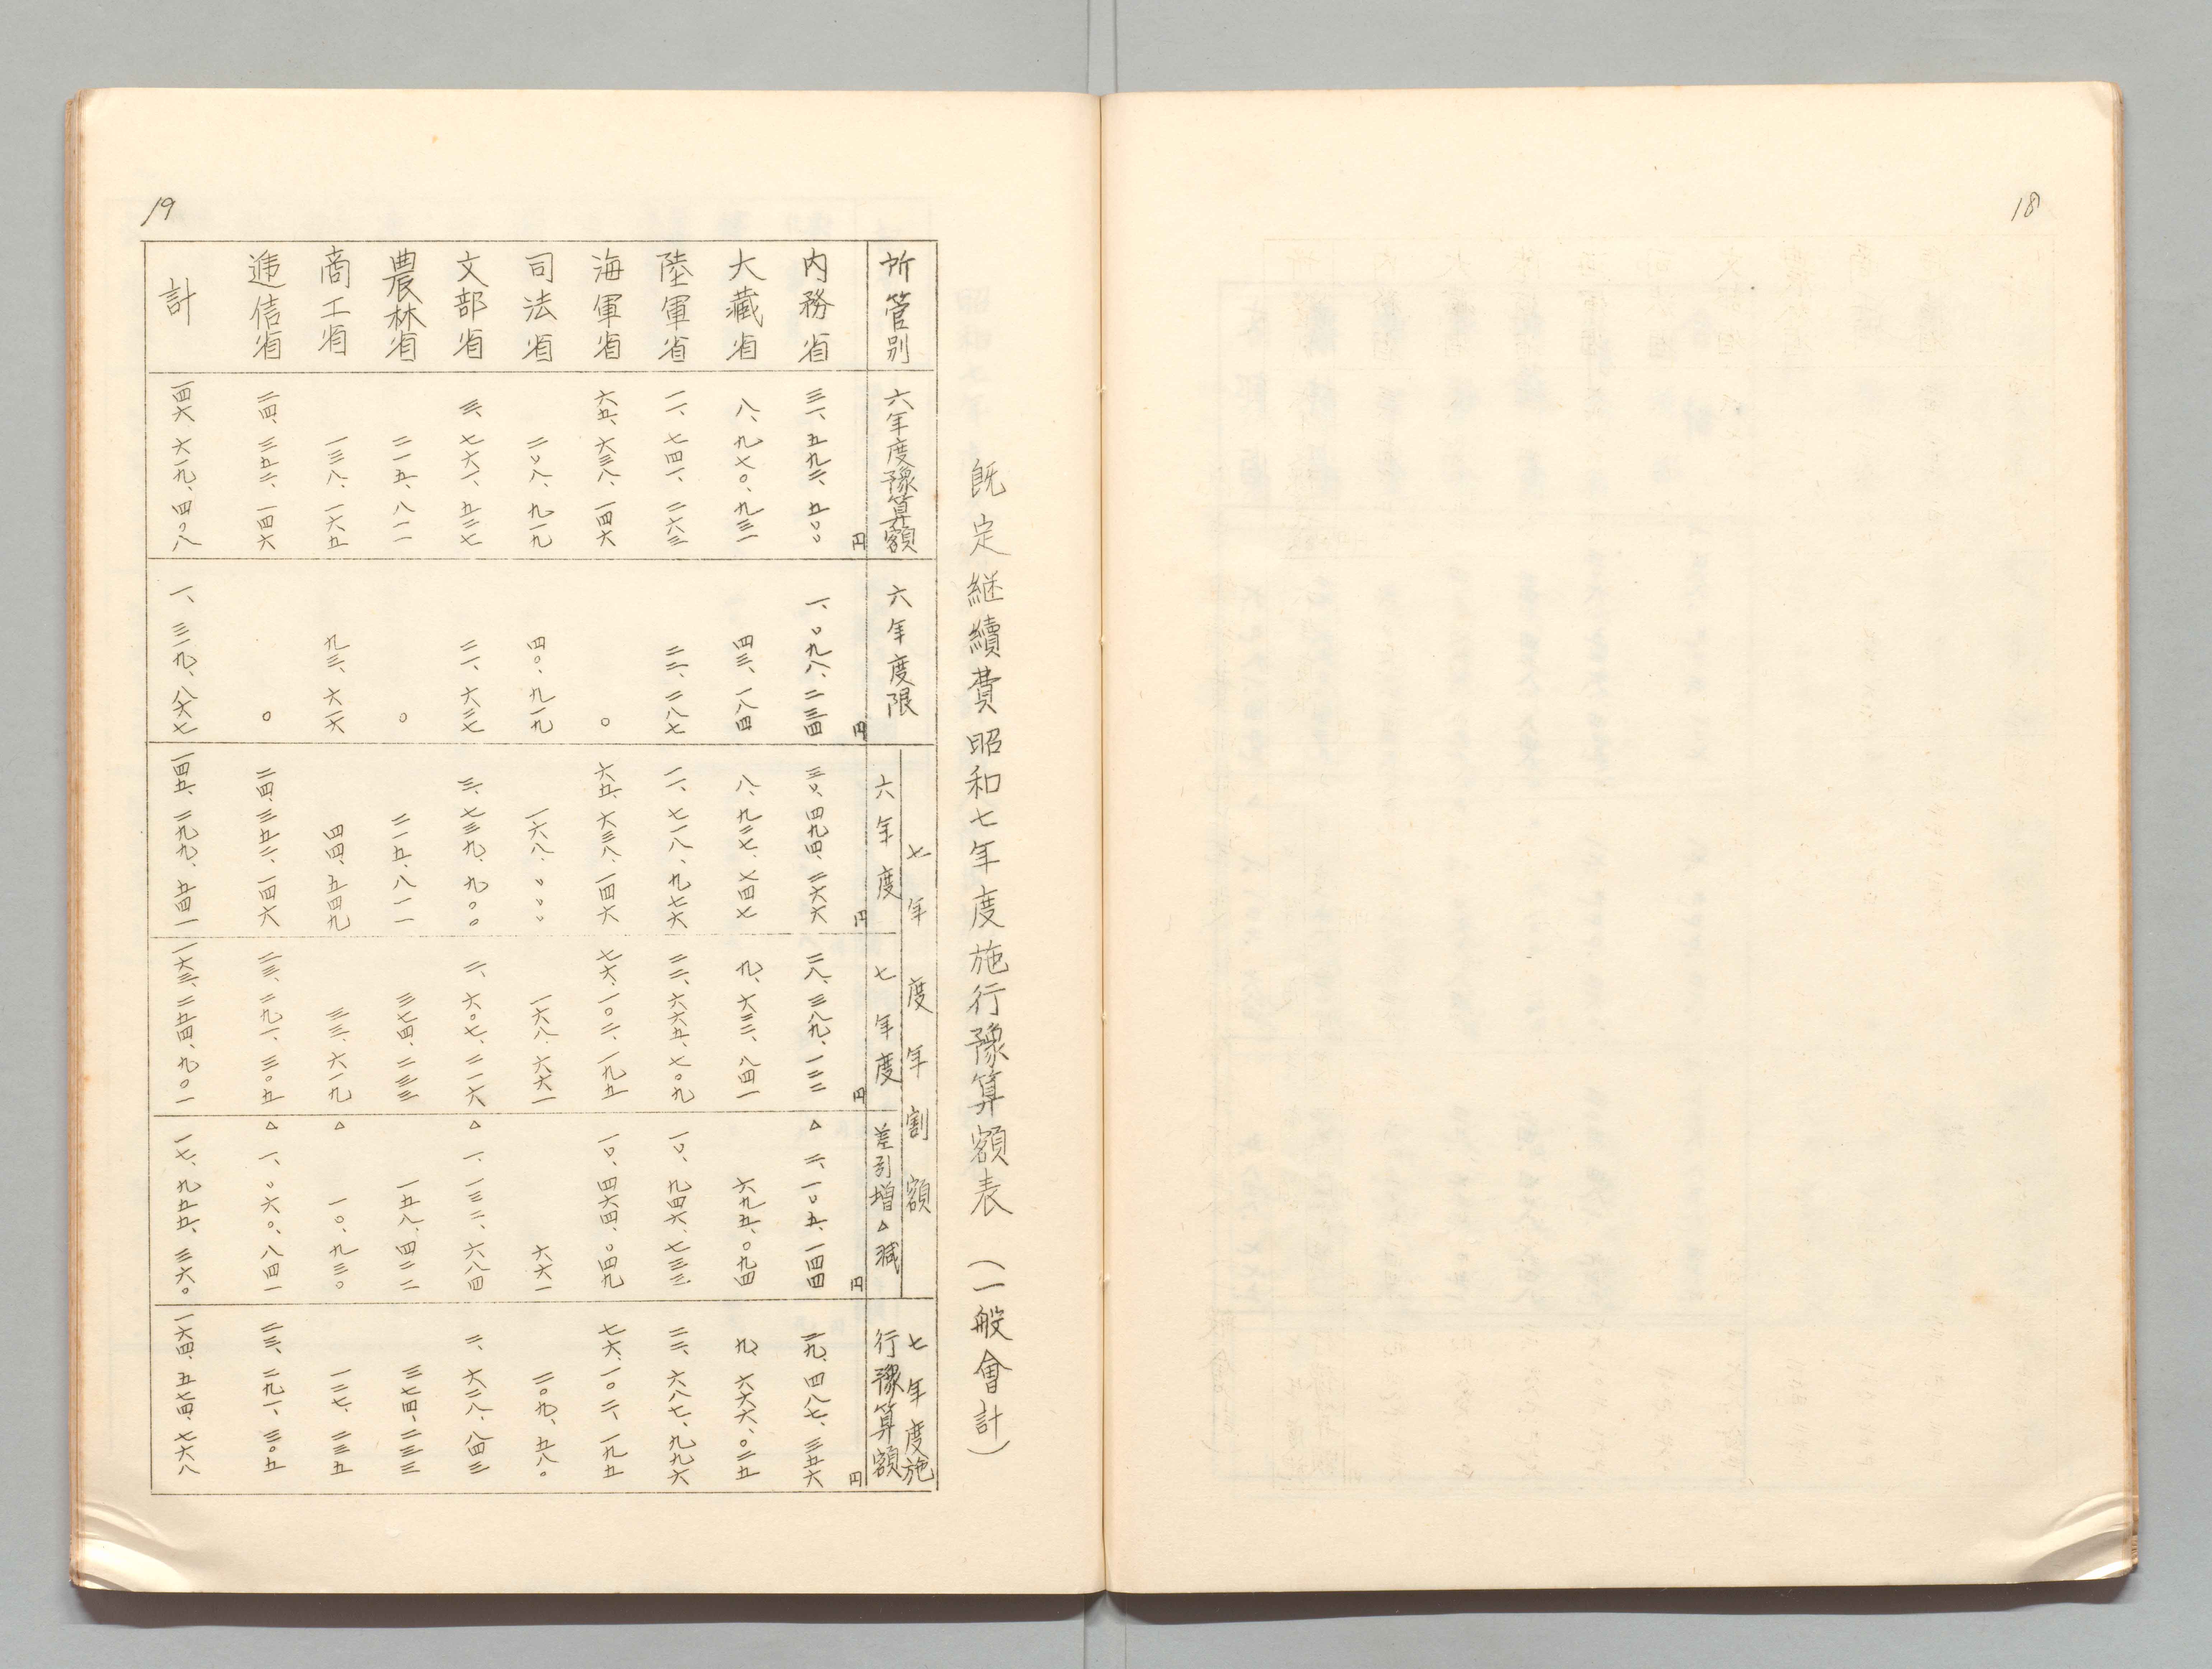 18
既定継續費昭和七年度施行豫算額表 (一般會計)
所管別 六年度豫算額 六年度限 七年度年割額 六年度 七年度 差引增△減 七年度施行豫算額
円 円 円 円 円 円
内務省 三一、五九二、五〇〇 一、〇九八、二三四 三〇、四九四、二六六 二八、三八九、一二二 △二、一〇五、一四四 二九、四八七、三五六
大藏省 八、九七〇、九三一 四三、一八四 八、九二七、七四七 九、六二二、八四一 六九五、〇九四 九、六六六、〇二五
陸軍省 一一、七四一、二六三 二二、二八七 一一、七一八、九七六 二二、六六五、七〇九 一〇、九四六、七三三 二二、六八七、九九六
海軍省 六五、六三八、一四六 〇 六五、六三八、一四六 七六、一〇二、一九五 一〇、四六四、〇四九 七六、一〇二、一九五
司法省 二〇八、九一九 四〇、九一九 一六八、〇〇〇 一六八、六六一 六六一 二〇九、五八〇
文部省 三、七六一、五二七 二一、六二七 三、七三九、九〇〇 二、六〇七、二一六 △一、一三二、六八四 二、六二八、八四三
農林省 二一五、八一一 〇 二一五、八一一 三七四、二三三 一五八、四二二 三七四、二三三
商工省 一三八、一六五 九三、六一六 四四、五四九 三三、六一九 △一〇、九三〇 一二七、二三五
逓信省 二四、三五二、一四六 〇 二四、三五二、一四六 二三、二九一、三〇五 △一、〇六〇、八四一 二三、二九一、三〇五
計 一四六、六一九、四〇八 一、三一九、八六七 一四五、二九九、五四一 一六三、二五四、九〇一 一七、九五五、三六〇 一六四、五七四、七六八
19